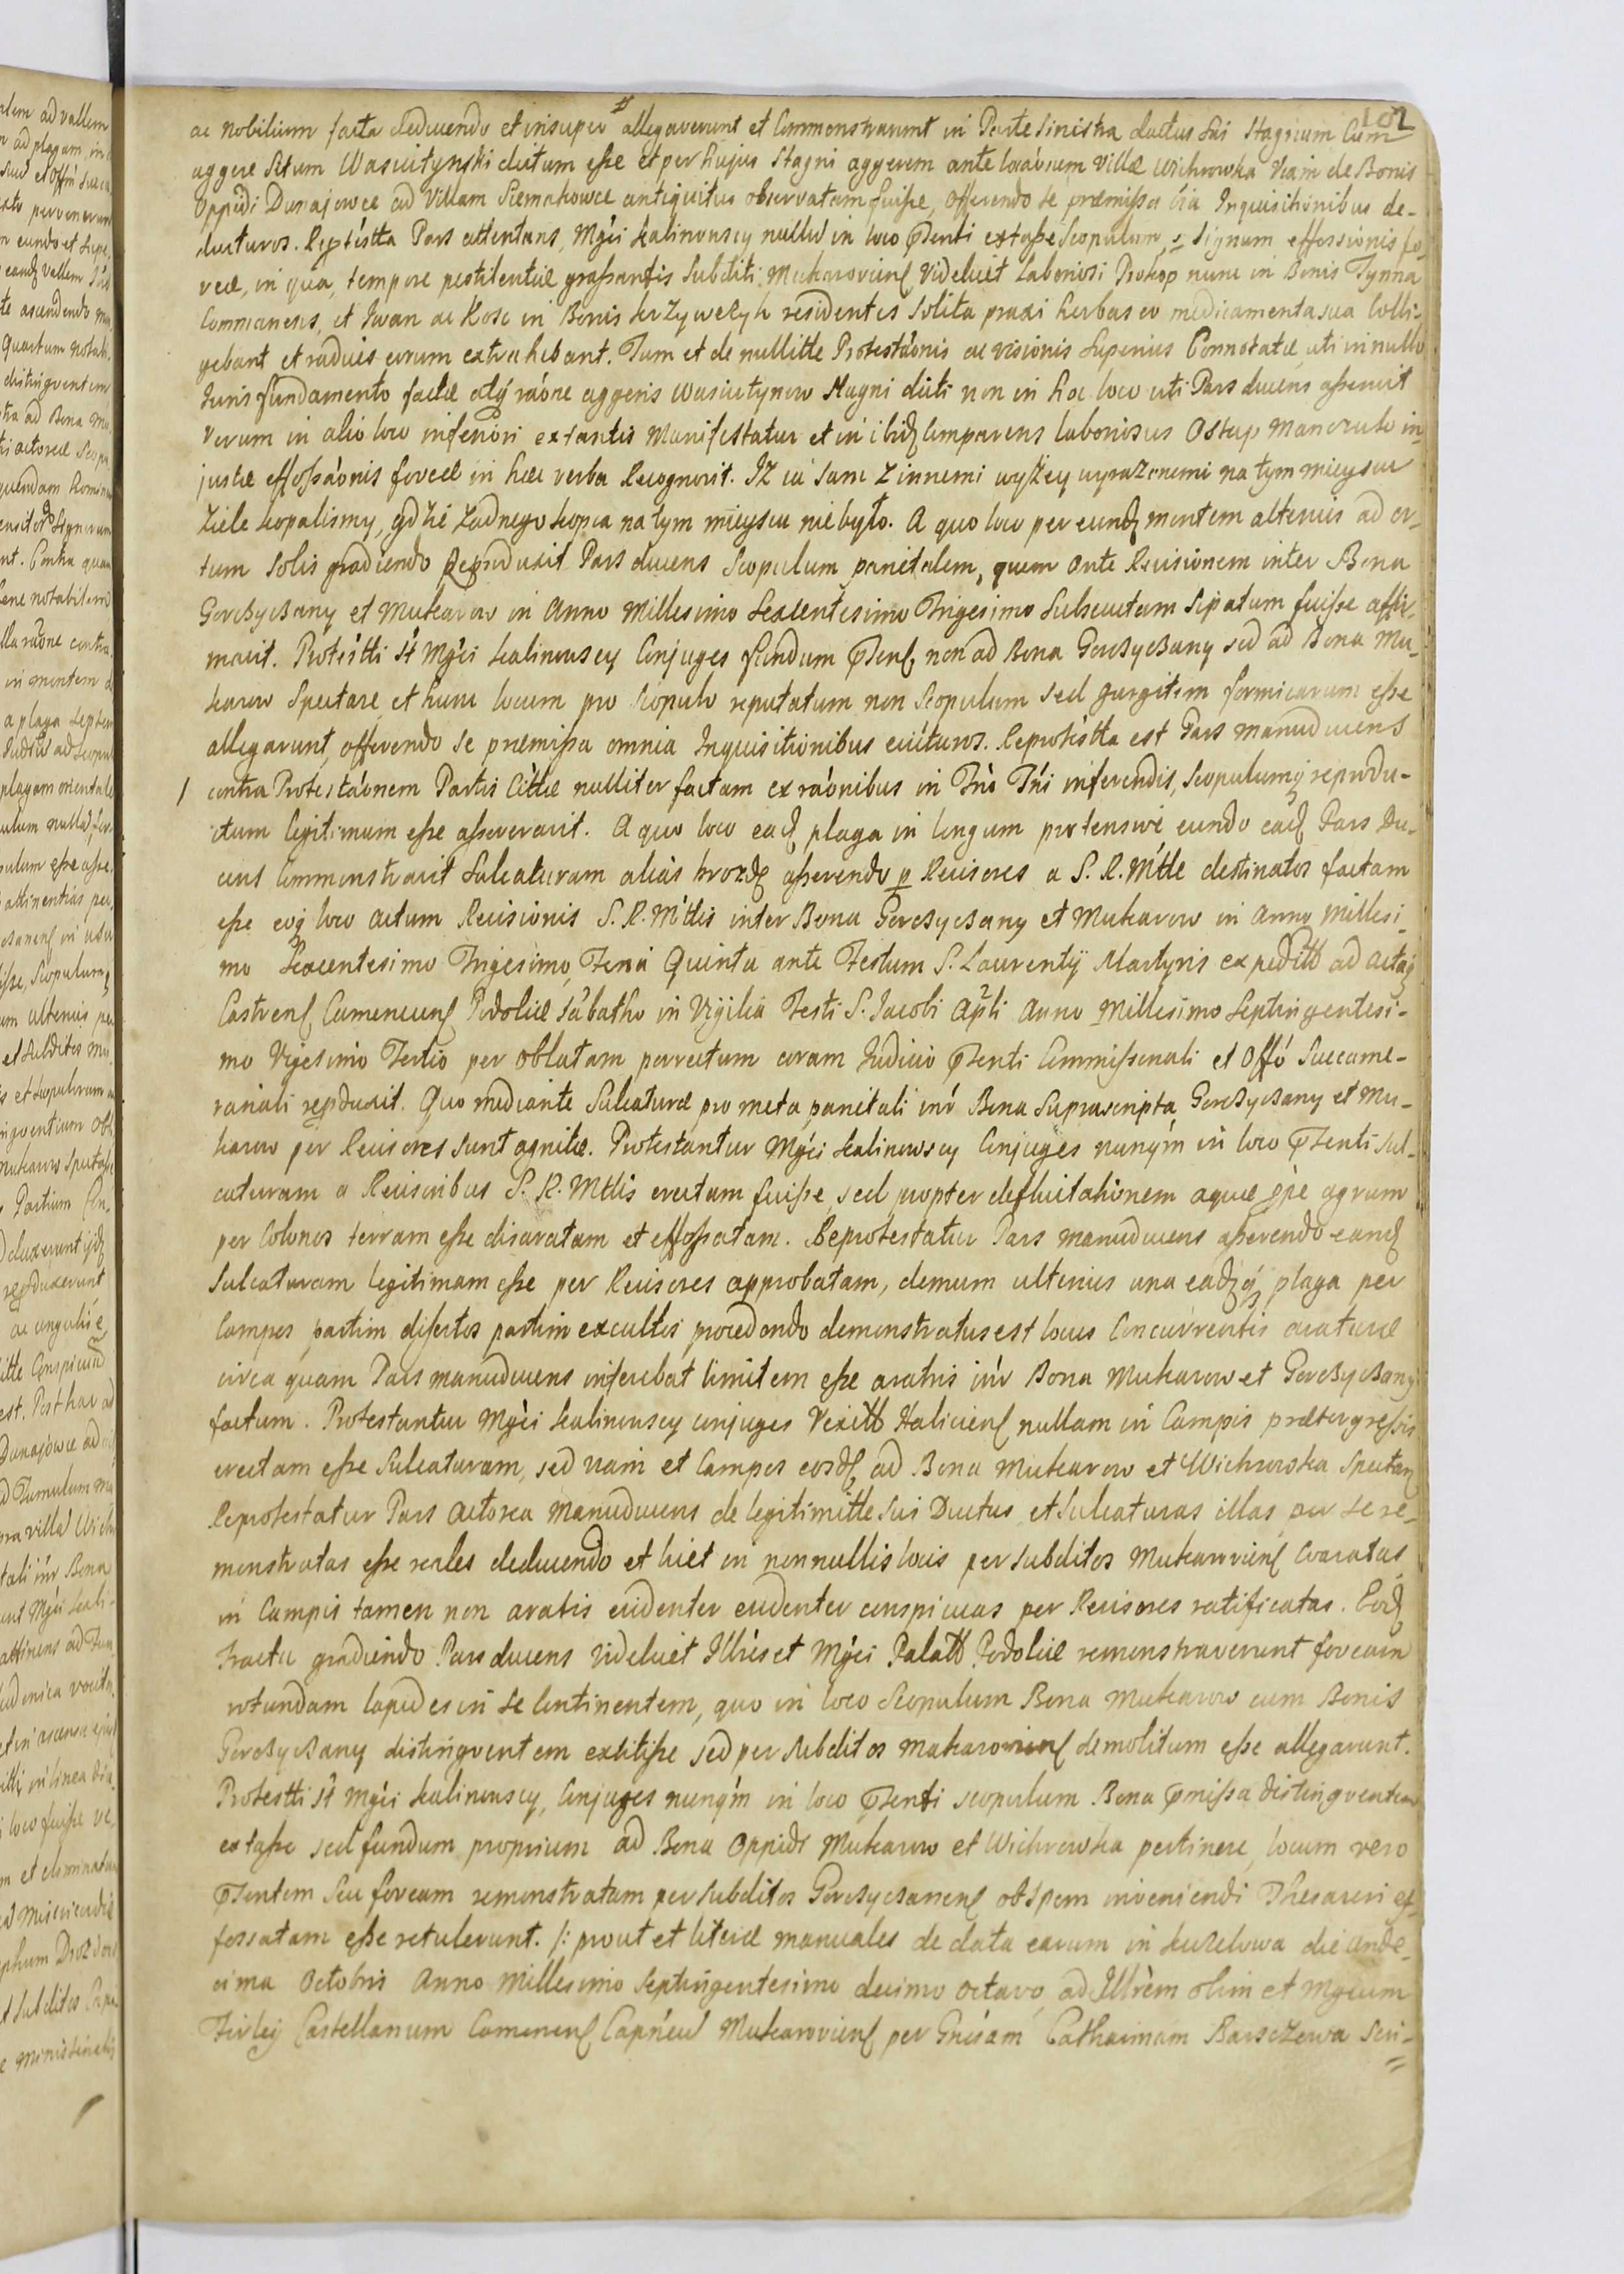 102
ac Nobilium facta deducendo et insuper # allegaverunt et Commonstrarunt in Parte sinistra ductus sui Stagnum Cum
aggere Situm Wasiutynski dictum esse et per hujus Stagni aggerem ante locationem Villæ Wichrowka Viam de Bonis
Oppidi Dunajowce ad Villam Siemakowce antiquitus observatam fuisse, Offerendo se præmissa oia Inquisitionibus de-
ducturos. Reprotestta Pars attentans, Mgci Kalinowscy nullū in loco pnti extasse Scopulum, Signum effossionis fo-
veæ, in qua, tempore pestilentiæ grassantis Subditi Mukarovien Videlicet Laboriosi Prokop nunc in Bonis Tynna
Commanens, et Iwan ac Kosc in Bonis Krzywczyk residentes Solita praxi herbas eo medicamenta sua Colli-
gebant et radices earum extrahebant. Tum et de nullitte Protestaonis ac visionis Superius Connotatæ uti in nullo
Iuris fundamento factæ atq raone aggeris Wasiutynow Stagni dicti non in hoc loco uti Pars ducens asseruit
Verum in alio loco inferiori extantis Manifestatur et in ibid Comparens laboriosus Ostap Manczule in-
justæ effossaonis foveæ in hæc verba Recognovit. Iz ia sam z innemi wyżey wyrazonemi na tym mieyscu
Ziele kopalismy, gdzie żadnego kopca na tym mieyscu nie było. A quo loco per eund montem alterius ad or-
tum Solis gradiendo Reproduxit Pars ducens Scopulum parietalem, quem ante Revisionem inter Bona
Gorczyczany et Mukarow in Anno Millesimo Sexcentesimo Trigesimo Subsecutam Sipatum fuisse affir-
mavit. Protestti st Mgci Kalinowscy Conjuges fundum pnten non ad Bona Gorczyczany sed ad Bona Mu-
karow Spectare, et hunc locum pro Scopulo reputatum non Scopulum sed gurgitem formicarum esse
allegarunt, offerendo se præmissa omnia Inquisitionibus evicturos. Reprotestta est Pars manuducens
/ contra Protestaonem Partis Cittæ nulliter factam ex raonibus in Tno Tni inferendis, Scopulumq reprodu-
ctum legitimum esse asseveravit. A quo loco ead plaga in longum protensive eundo ead Pars Du-
cens Commonstravit Sulcaturam alias brozd asserendo p Revisores a S. R. Mtte destinatos factam
esse eoq loco actum Revisionis S. R. Mttis inter Bona Gorczyczany et Mukarow in Anno Millesi-
mo Sexcentesimo Trigesimo, Feria Quinta ante Festum S. Laurentÿ Martyris expeditt ad actaq
Castren Camenecen Podoliæ Sabatho in Vigilia Festi S. Iacobi Apli Anno Millesimo Septingentesi-
mo Vigesimo Tertio per oblatam porrectum coram Iudicio pnti Commissonali et Offo Succame-
rariali reproduxit. Quo mediante Sulcaturæ pro meta parietali inr Bona Suprascripta Gorczyczany et Mu-
karow per Revisores sunt agnitæ. Protestantur Mgci Kalinowscy Conjuges nunqm in loco pnti Sul-
caturam a Revisoribus S. R. Mttis erectam fuisse, sed propter defluitationem aquæ ppe agrum
per Colonos terram esse disaratam et effossatam. Reprotestatur Pars manuducens asserendo eand
Sulcaturam legitimam esse per Revisores approbatam, demum ulterius una eadq plaga per
Campos partim desertos partim excultos procedendo demonstratus est locus Concurrentis araturæ
circa quam Pars manuducens inferebat limitem esse aratris inr Bona Mukarow et Gorczyczany
factum. Protestantur Mgci Kalinowscy conjuges Vexill Halicien nullam in Campis prætergressis
erectam esse Sulcaturam, sed viam et Campos eosd ad Bona Mukarow et Wichrowka Spectare
Reprotestatur Pars Actorea Manuducens de legitimitte sui Ductus, et Sulcaturas illas per se re-
monstratas esse reales deducendo et licet in nonnullis locis per Subditos Mukarovien Coaratas,
in Campis tamen non aratis evidenter evidenter conspicuas per Revisores ratificatas. Eod
tractu gradiendo Pars ducens Videlicet Illres et Mgci Palatt Podoliæ remonstraverunt foveam
rotundam lapides in se Continentem, quo in loco Scopulum Bona Mukarow cum Bonis
Gorczyczany distingventem extitisse sed per Subditos Mukarovien demolitum esse allegarunt.
Protestti st Mgci Kalinowscy, Conjuges nunqm in loco pnti scopulum Bona pmissa distingventem
extasse sed fundum proprium ad Bona Oppidi Mukarow et Wichrowka pertinere, locum vero
pntem seu foveam remonstratam per Subditos Gorczyczanen ob spem inveniendi Thesauri ef-
fossatam esse retulerunt. /: prout et literæ manuales de data earum in Kuzelowa die unde-
cima Octobris Anno Millesimo Septingentesimo decimo octavo, ad Illrem olim et Mgcum
Firley Castellanum Camenen Capneū Mukarovien per Gnsam Catharinam Barsczewa Scri-